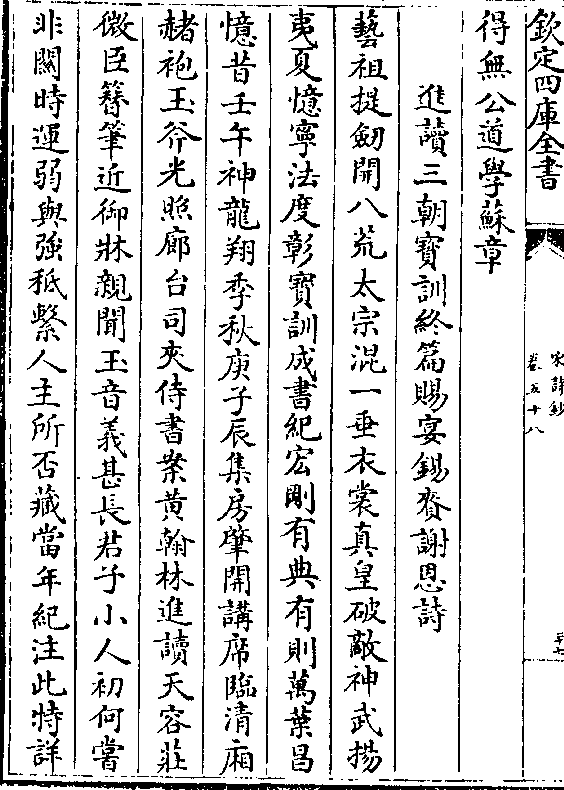 欽定四庫全書
宋詩鈔
卷五十八
得無公道學蘇章
進讀三朝寶訓終篇賜宴錫賚謝恩詩
藝祖提劔開八荒太宗混一垂衣裳真皇破敵神武揚
夷夏憶寧法度彰寶訓成書紀宏剛有典有則萬葉昌
憶昔壬午神龍翔季秋庚子辰集房肇開講席臨清廂
赭袍玉斧光照廊台司夾侍書案黄翰林進讀天容莊
微臣簪筆近御牀親聞玉音義甚長君子小人初何嘗
非關時運弱與強秪繫人主所否藏當年紀注此特詳